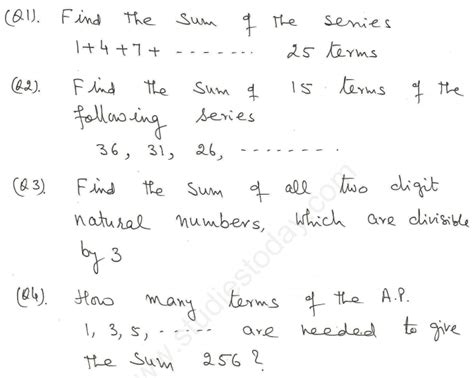 (Q1). Find the sum of the series
1+4+7+ ------- 25 terms
(Q2). Find the sum of 15 terms of the
following series
36, 31, 26, --------
(Q3) Find the sum of all two digit
natural numbers, which are divisible
by 3
(Q4). How many terms of the A.P.
1, 3, 5, ----- are needed to give
the sum 256?
www.studiestoday.com